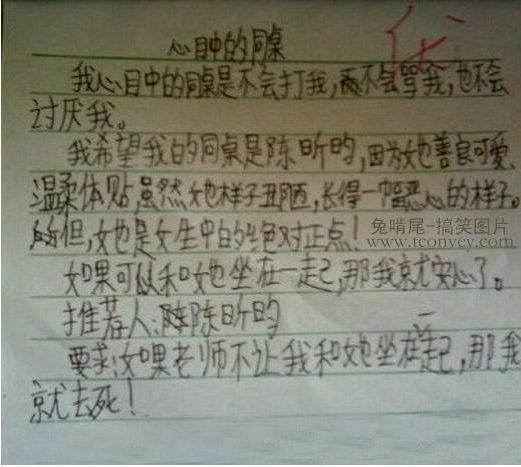 心目中的同桌
优
我心目中的同桌是不会打我,不会骂我,也不会
讨厌我。
我希望我的同桌是陈昕昀,因为她善良可爱、
温柔体贴,虽然她样子丑陋,长得一幅恶心的样子。
但,她是女生中的绝对正点!
兔啃尾-搞笑图片
www.tconvey.com
如果可以和她坐在一起,那我就安心了。
推荐人:陈昕昀
要求:如果老师不让我和她坐在一起,那我
就去死!